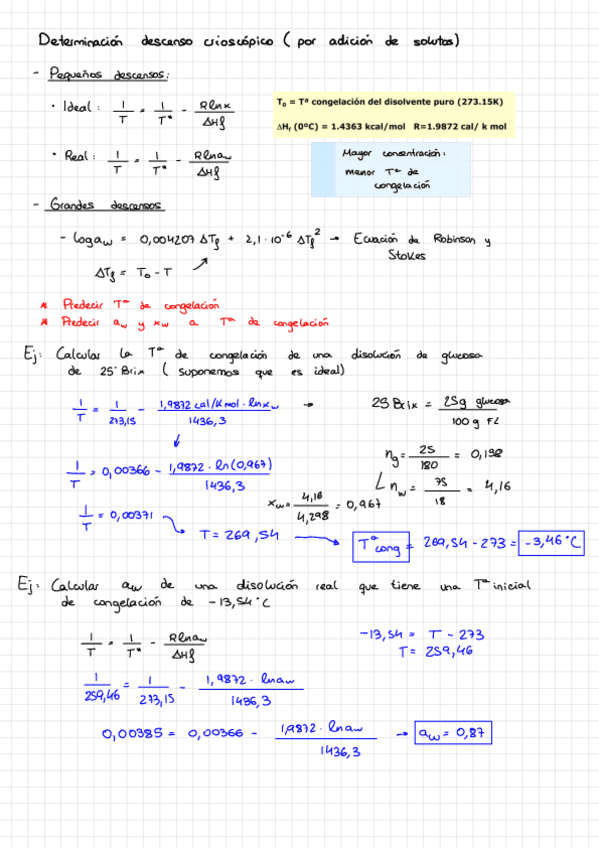 Determinación descenso crioscópico (por adición de solutos)
- Pequeños descensos:
· Ideal: 1/T = 1/T* - R ln x/ΔHf
T₀ = Tª congelación del disolvente puro (273.15K)
ΔHf (0ºC) = 1.4363 kcal/mol R=1.9872 cal/ k mol
· Real: 1/T = 1/T* - R ln aw/ΔHf
Mayor concentración:
menor Tª de
congelación
- Grandes descensos
- log aw = 0,004207 ΔTf + 2,1·10⁻⁶ ΔTf² → Ecuación de Robinson y
Stokes
ΔTf = T₀ - T
* Predecir Tª de congelación
* Predecir aw y xw a Tª de congelación
Ej: Calcular la Tª de congelación de una disolución de glucosa
de 25° Brix (suponemos que es ideal)
1/T = 1/273,15 - 1,9872 cal/K mol · ln xw/1436,3 → 25 Brix = 25g glucosa/100 g FL
1/T = 0,00366 - 1,9872 · ln(0,967)/1436,3
ng = 25/180 = 0,138
nw = 75/18 = 4,16
xw = 4,16/4,298 = 0,967
1/T = 0,00371
T = 269,54 → Tª cong = 269,54 - 273 = -3,46°C
Ej: Calcular aw de una disolución real que tiene una Tª inicial
de congelación de -13,54°C
1/T = 1/T* - R ln aw/ΔHf
-13,54 = T - 273
T = 259,46
1/259,46 = 1/273,15 - 1,9872 · ln aw/1436,3
0,00385 = 0,00366 - 1,9872 · ln aw/1436,3 → aw = 0,87